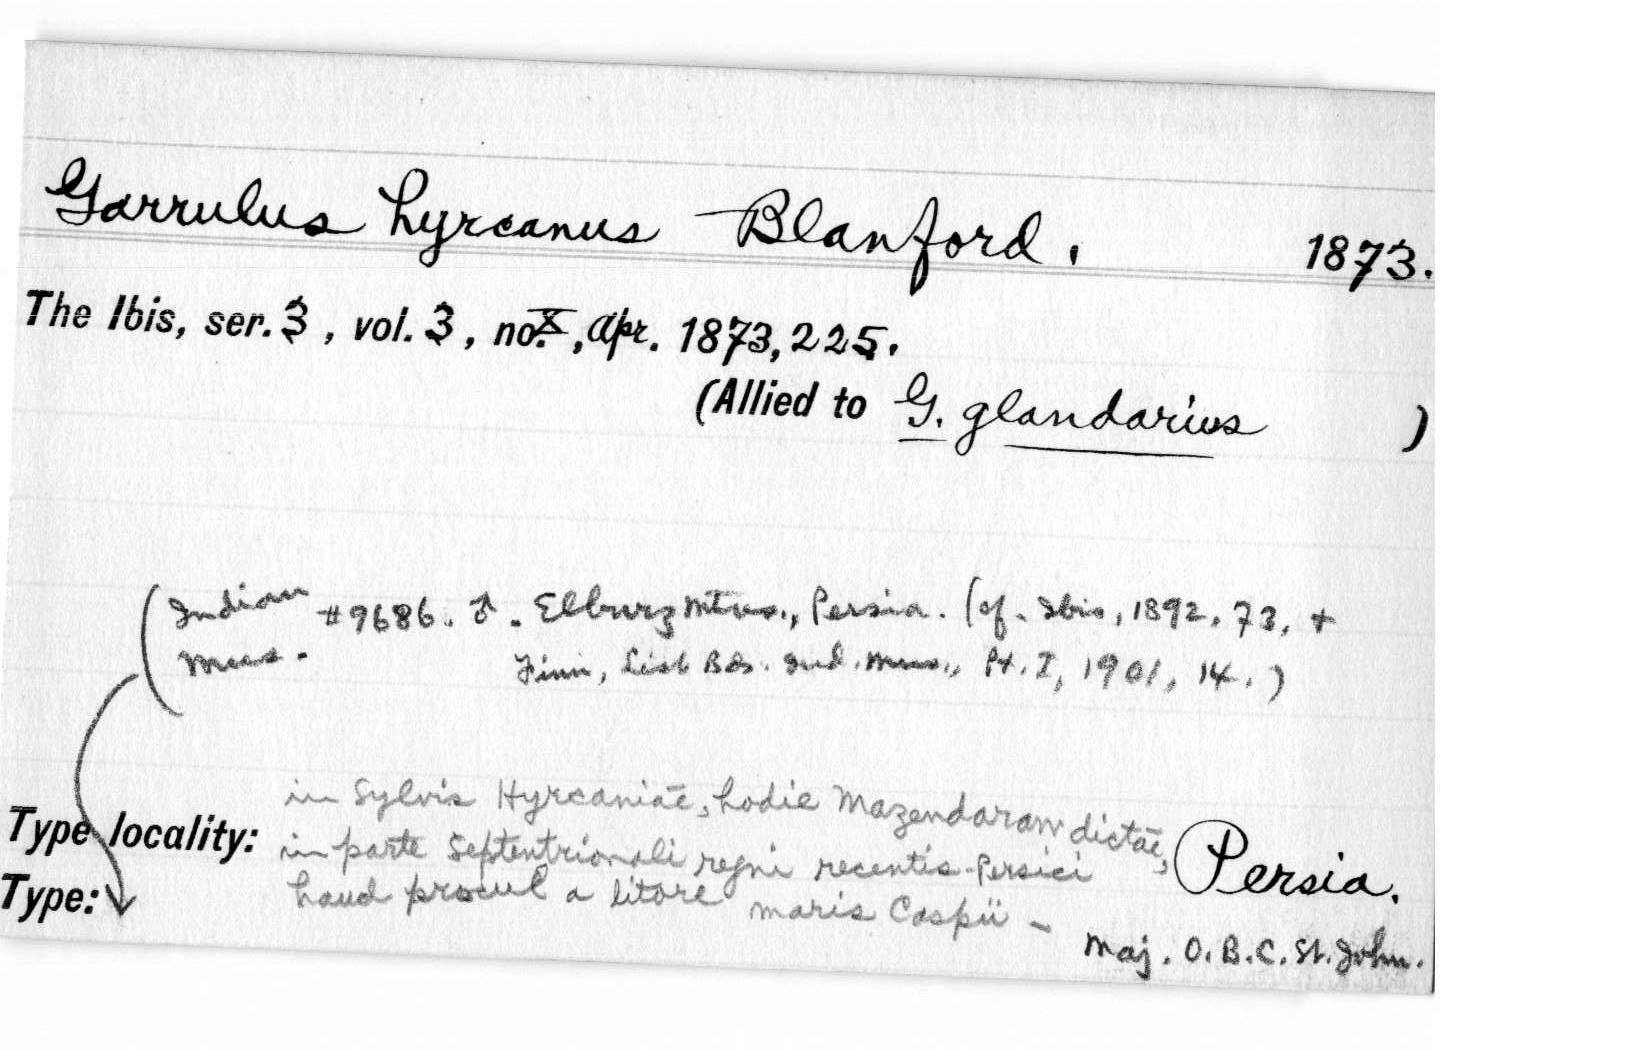 Garrulus hyrcanus Blanford. 1873.
The Ibis, ser. 3, vol. 3, no. X, Apr. 1873, 225.
(Allied to G. glandarius )
(Indian #9686. ♂. Elburz Mtns., Persia. (cf. Ibis, 1892, 73, +
Mus. Finn, List Bds. Ind. Mus., Pt. I, 1901, 14.)
in Sylvis Hyrcaniae, hodie Mazendaram dictae,
Type locality: in parte Septentrionali regni recentis-Persici Persia.
Type: haud procul a litore maris Caspii -
Maj. O. B. C. St. John.